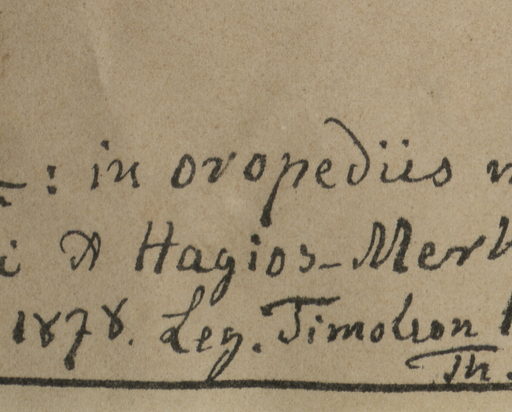 : in oropediis
i Hagios-Mer
1878. Leg. Timoleon
Th.